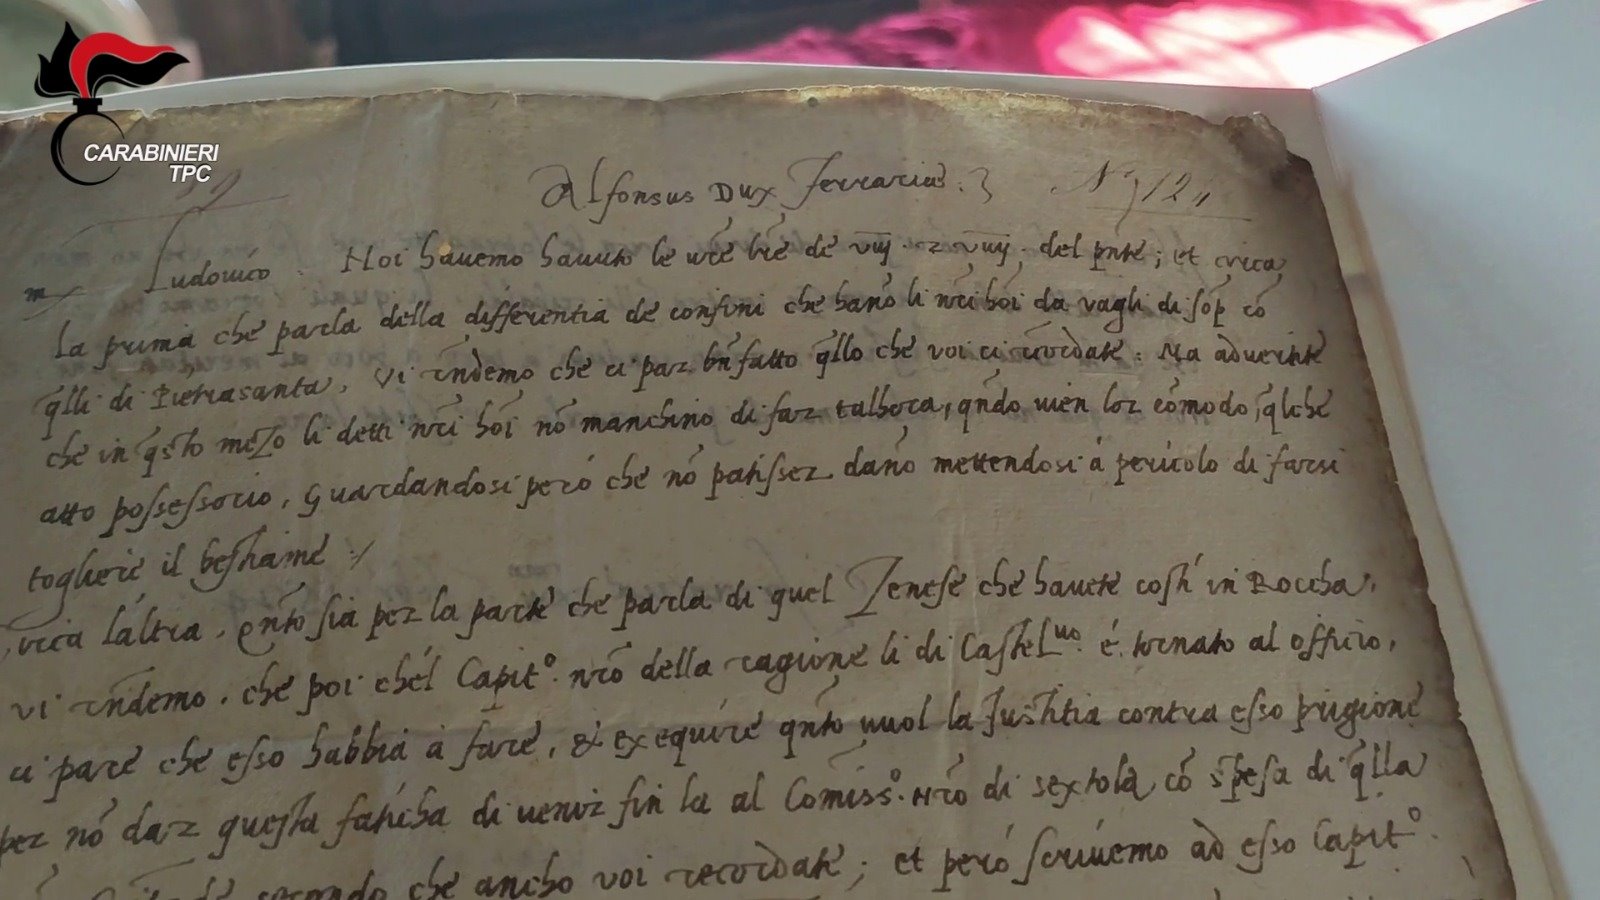 CARABINIERI
TPC
Alfonsus Dux Ferrariae. 3
N. 124
Ludovico. Noi havemo havuto le vr̄e lr̄e de viij. et viiij. del pn̄te; et circa
la prima che parla della differentia de confini che hano li nr̄i hoī da vagli di sop̄ cō
q̄lli di Pietrasanta, vi rn̄demo che ci par bn̄ fatto q̄llo che voi ci ricordate: Ma advertite
che in q̄sto mezo li detti nr̄i hoī nō manchino di far talhora, qn̄do vien lor cōmodo, q̄lche
atto possessorio, Guardandosi peró che nō patisser dan̄o mettendosi á pericolo di farsi
togliere il bestiame /
circa láltra. Qn̄to sia per la parte che parla di quel Zenese che havete costí in Roccha,
vi rn̄demo. che poi chél Capit.º nr̄o della ragione li di Castel.uo é tornato al officio,
ci pare che esso habbia á fare, & exequire qn̄to vuol la Justitia contra esso prigione
per nō dar questa faticha di venir fin la al Comiss.º nr̄o di sextola cō spesa di q̄lla
secondo che ancho voi recordate; et peró scrivemo ad esso Capit.º